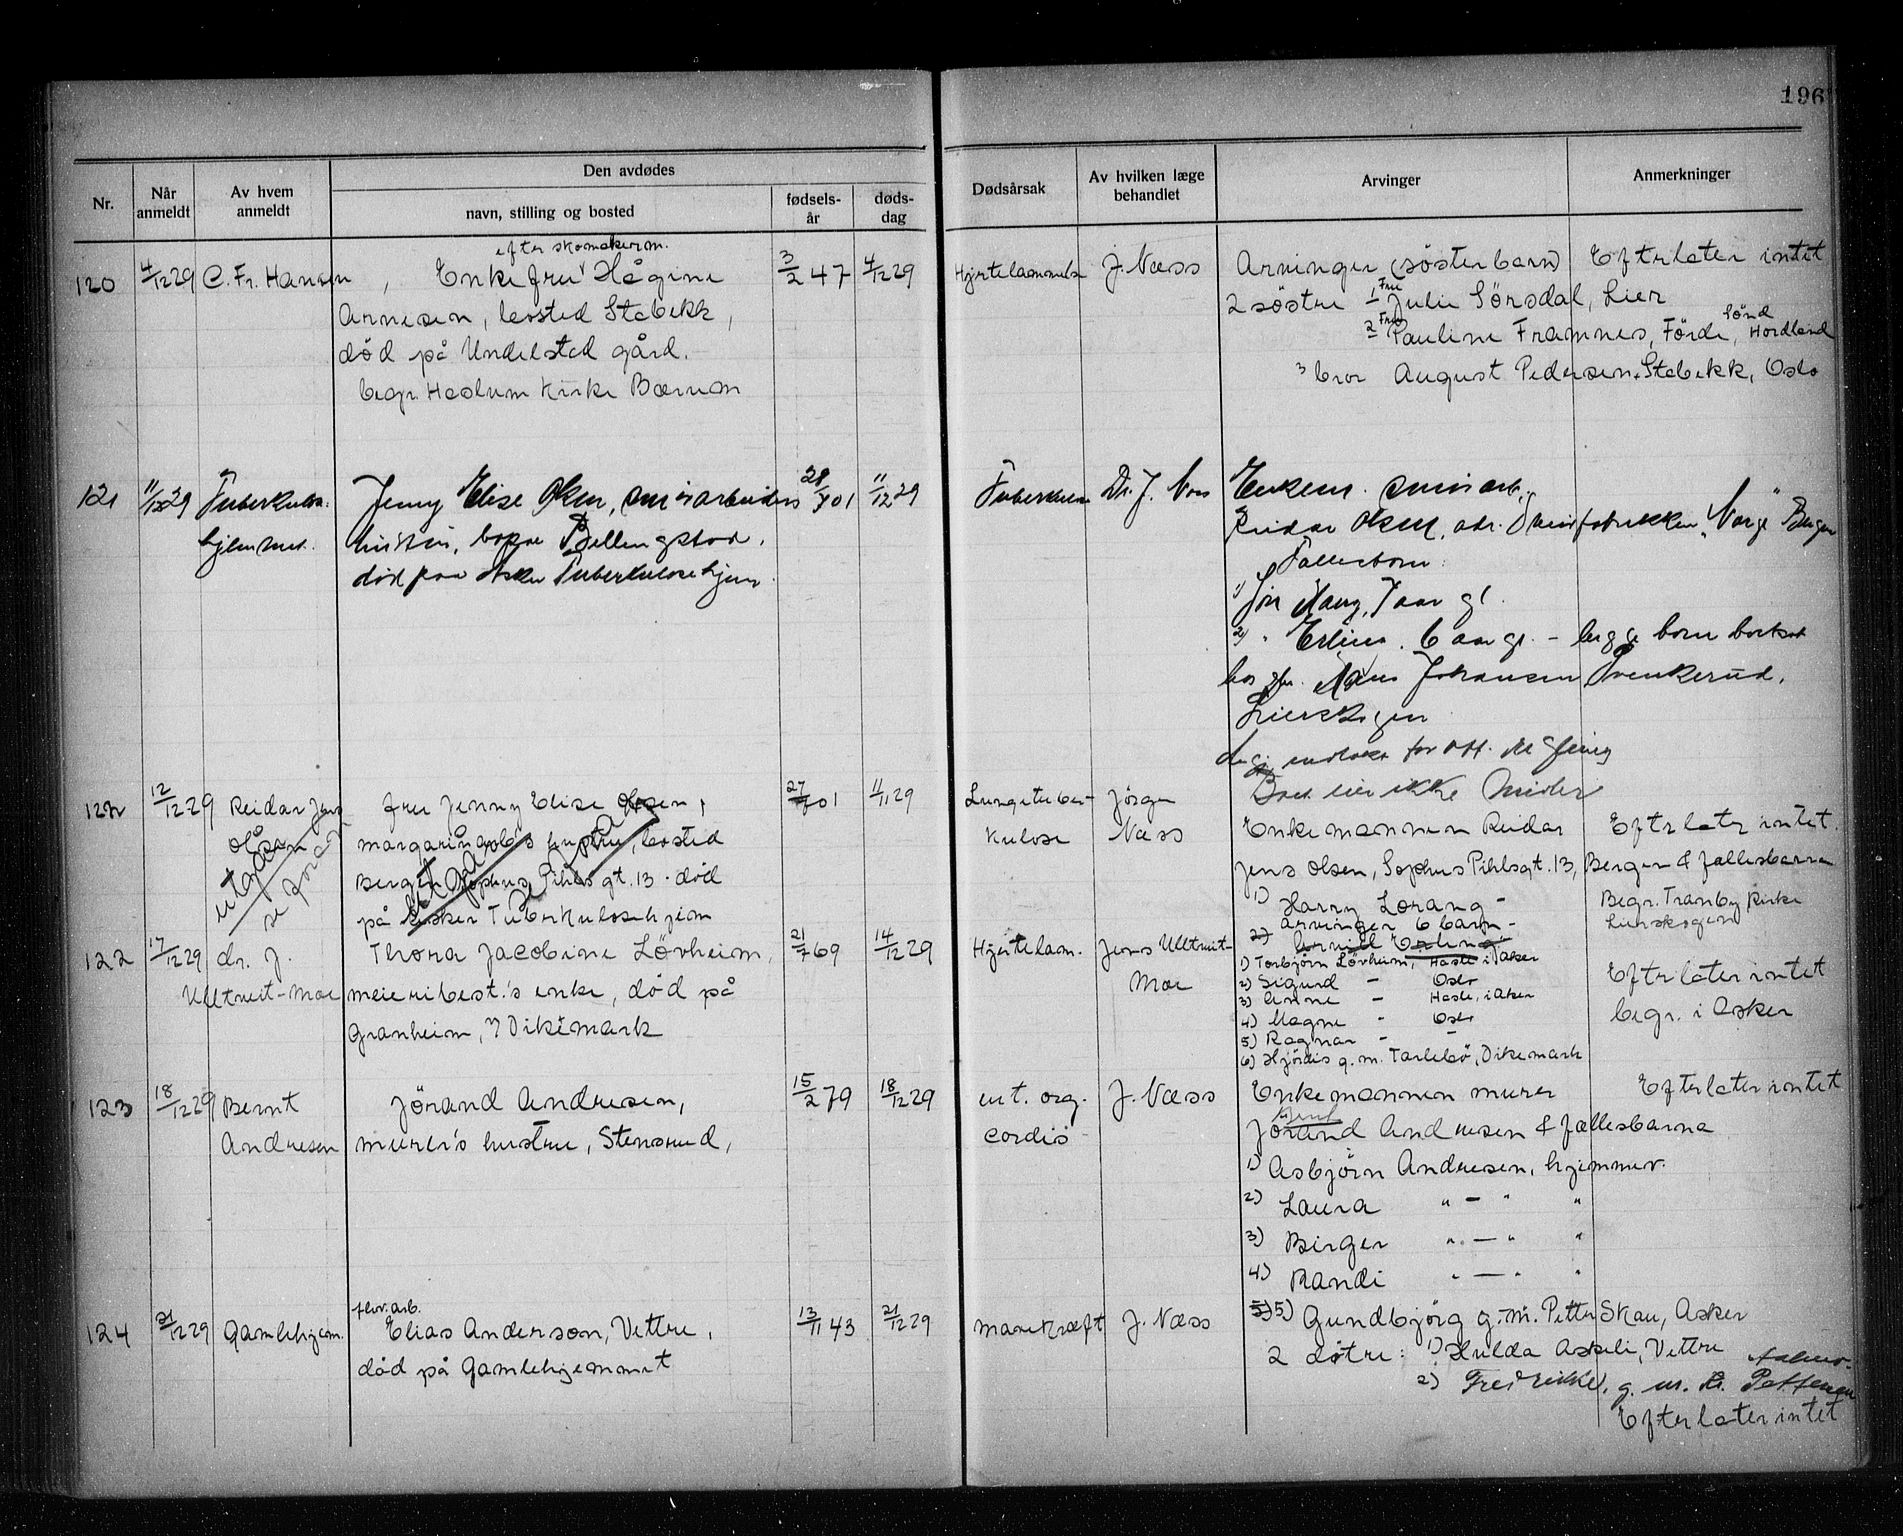 196
Den avdødes
Nr.
Når anmeldt
Av hvem anmeldt
navn, stilling og bosted
fødsels-år
døds-dag
Dødsårsak
Av hvilken læge behandlet
Arvinger
Anmerkninger
120 4/12 29 C. Fr. Hansen
efter skomakerm.
Enkefru Hågine
Arnesen, bosted Stabekk,
død på Undelstad gård.
begr. Haslum Kirke Bærum
3/2 47 4/12 29
Hjertelammelse J. Næss
Arvinger (søsterbarn) Efterlater intet
2 søstre 1 Fru Julie Sørsdal, Lier
2 Fru Pauline Framnes, Førde, Sønd Hordland
3 bror August Pedersen, Stabekk, Oslo
121 11/12 29 Tuberkulose
hjemmet.
Jenny Elise Olsen, smørarbeiders
hustru, Billingstad.
død paa Asker Tuberkulosehjem.
28/7 01 11/12 29
Dr. J. Næss
Enkem. smørarb.
Reidar Olsen, adr. Smørfabrikken "Norge" Bergen
Fællesbarn:
1) 7 aar gl.
2) 6 aar gl. - begge barn bortsat
hos Hans Johansen Svenkerud,
Lierskogen
Boet eier ikke midler
122 12/12 29 Reidar Jens
Olsen
utgår
se foran
fru Jenny Elise Olsen,
margarinarb's hustru, bosted
Bergen Sophus Pihlsgt. 13. død
på Asker Tuberkulosehjem
utgår
27/7 01 11/11 29
Lungetuber-
kulose
Jørgen
Næss
Enkemannen Reidar
Jens Olsen, Sophus Pihlsgt. 13, Bergen & fællesbarna
1) Harry Lorang -
2) Arvid Erling -
Efterlater intet.
Begr. Tranby Kirke
Lierskogen
122 17/12 29 dr. J.
Ulltveit-Moe
Thora Jacobine Løvheim,
meieribest.'s enke, død på
Granheim, Dikemark
21/7 69 14/12 29
Hjertelam. Jens Ulltveit-
Moe
Arvinger 6 barn -
1) Torbjørn Løvheim, Hasle i Aker
2) Sigurd - Oslo
3) Anne - Hasle, i Aker
4) Magne - Oslo
5) Ragnar - -
6) Hjørdis g.m. Tarlebø, Dikemark
Efterlater intet
begr. i Asker
123 18/12 29 Bernt
Andresen
Jørand Andresen,
murer's hustru, Stensrud,
15/2 79 18/12 29
int. org.
cordis
J. Næss
Enkemannen murer Efterlater intet
Bernt
Jørand Andresen & fællesbarna
1) Asbjørn Andresen, hjemmev.
2) Laura " - " "
3) Birger " - " "
4) Randi " - " "
5) 5) Gundbjørg g.m. Petter Skau, Asker
124 21/12 29 Gamlehjem.
fhv. arb.
Elias Anderson, Vettre,
død på Gamlehjemmet
13/11 43 21/12 29
mavekræft J. Næss
2 døtre: 1) Hulda Askeli, Vettre
2) Fredrikke, g. m. Kr. Pettersen
Efterlater intet